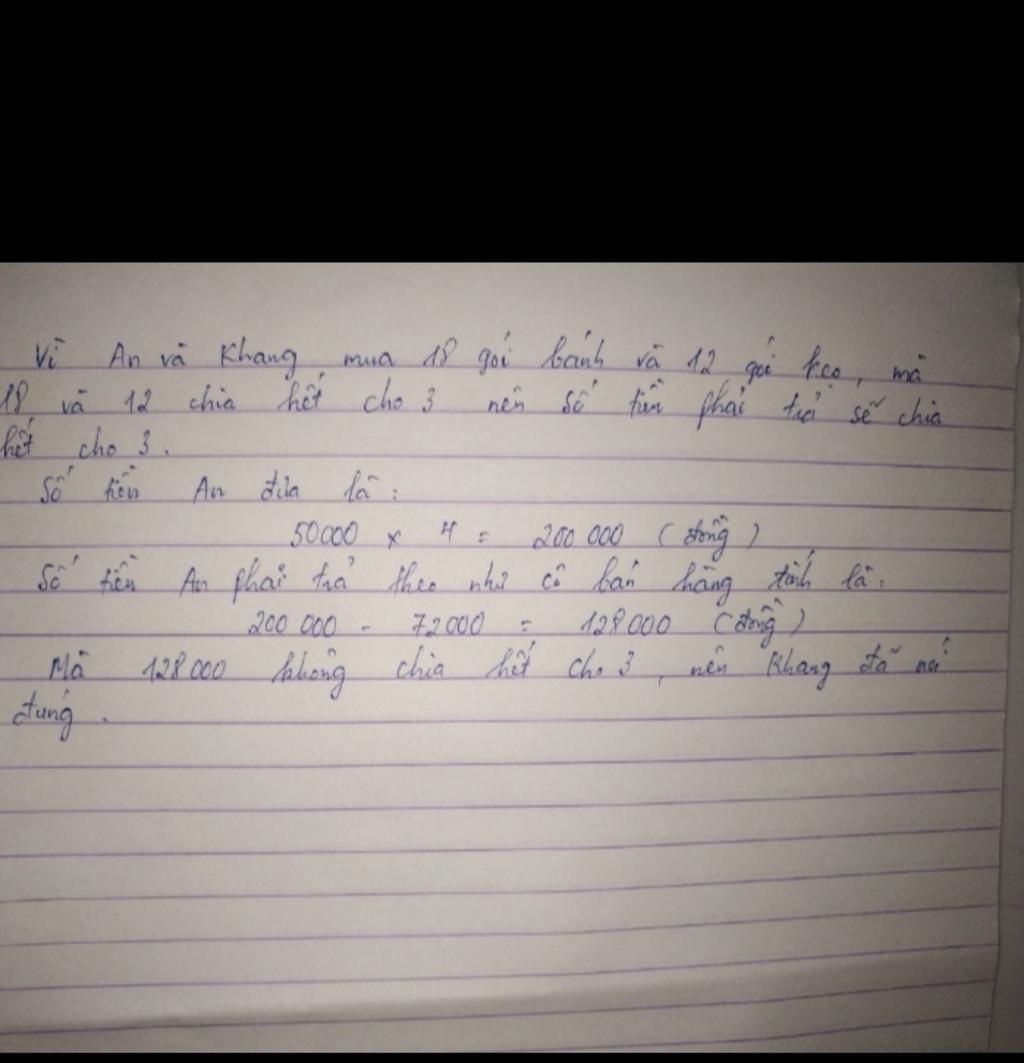 Vì An và Khang mua 18 gói bánh và 12 gói kẹo, mà
18 và 12 chia hết cho 3 nên số tiền phải trả sẽ chia
hết cho 3.
Số tiền An đưa là:
50000 x 4 = 200 000 (đồng)
Số tiền An phải trả theo như cô bán hàng tính là:
200 000 - 72000 = 128000 (đồng)
Mà 128000 không chia hết cho 3, nên Khang đã nói
đúng.